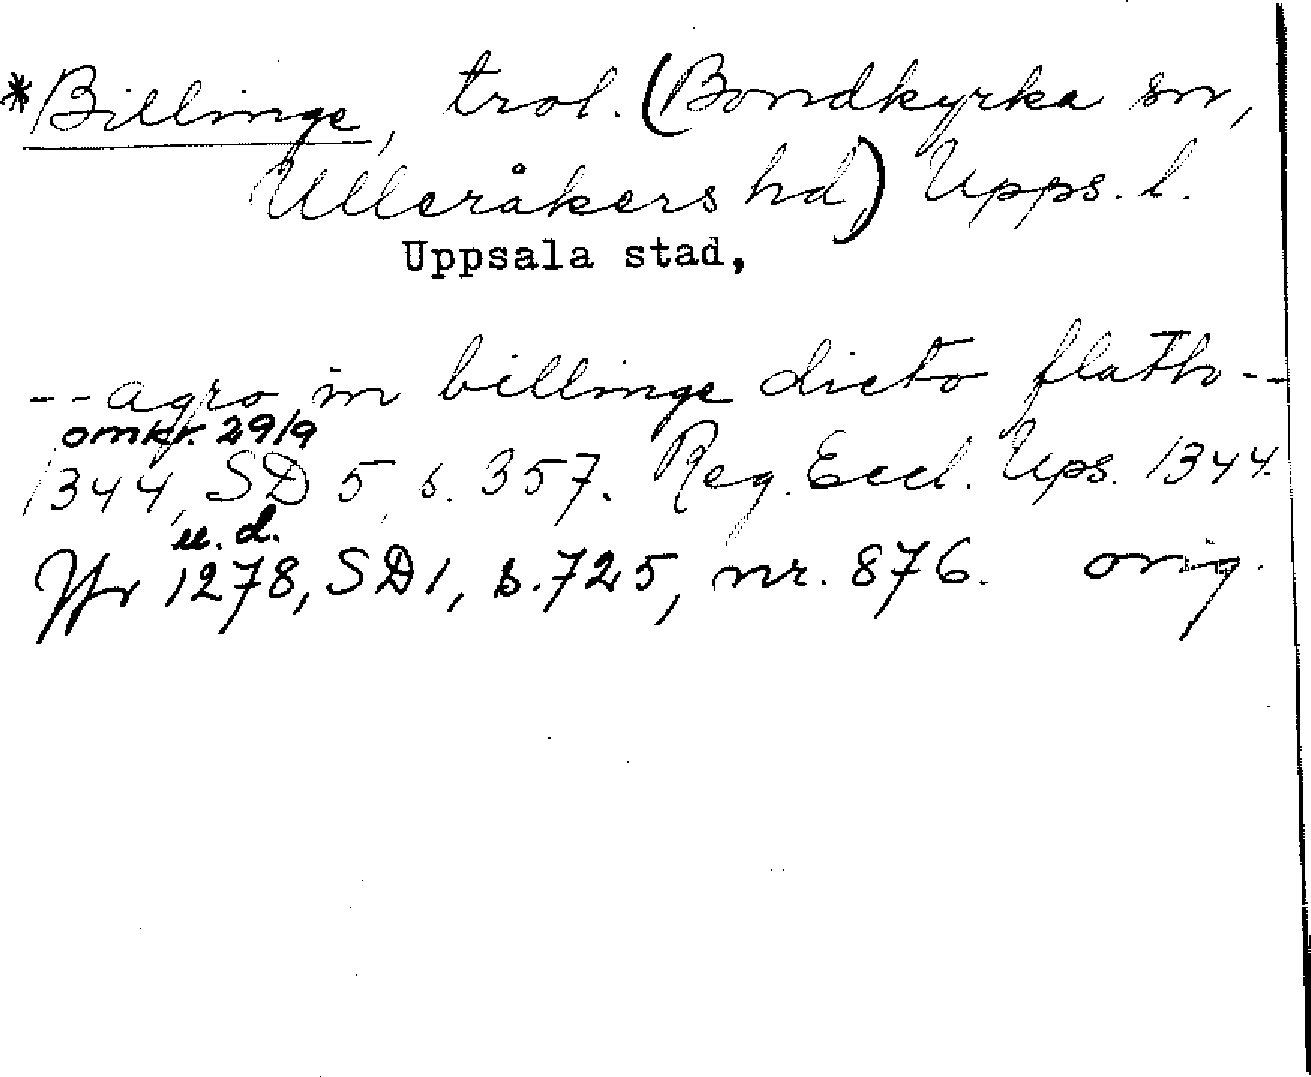 *Billinge, trol. (Bondkyrka sn,
Ulleråkers hd) Upps. l.
Uppsala stad,
-- agro in billinge dicto flatho --
omkr. 29/9
1344, SD 5 s. 357. Reg. Eccl. Ups. 1344.
u. d.
Jfr 1278, SD 1, s. 725, nr. 876. orig.